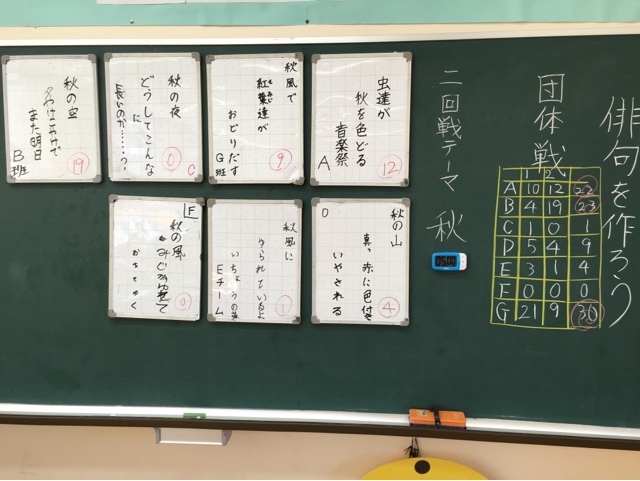 俳句を作ろう
団体戦
1 2
A 10 12 22
B 4 19 23
C 1 0 1
D 5 4 9
E 3 1 4
F 0 0 0
G 21 9 30
二回戦テーマ 秋
虫達が
秋を色どる
音楽祭
A
12
秋風で
紅葉達が
おどりだす
G班
9
秋の夜
どうしてこんな
に
長いのか……?
C
0
秋の空
また明日
B班
19
秋の山
真っ赤に色付き
いやされる
D
4
秋風に
ゆられているよ
いちょうの葉
Eチーム
1
F
秋の風
おちてゆく
0